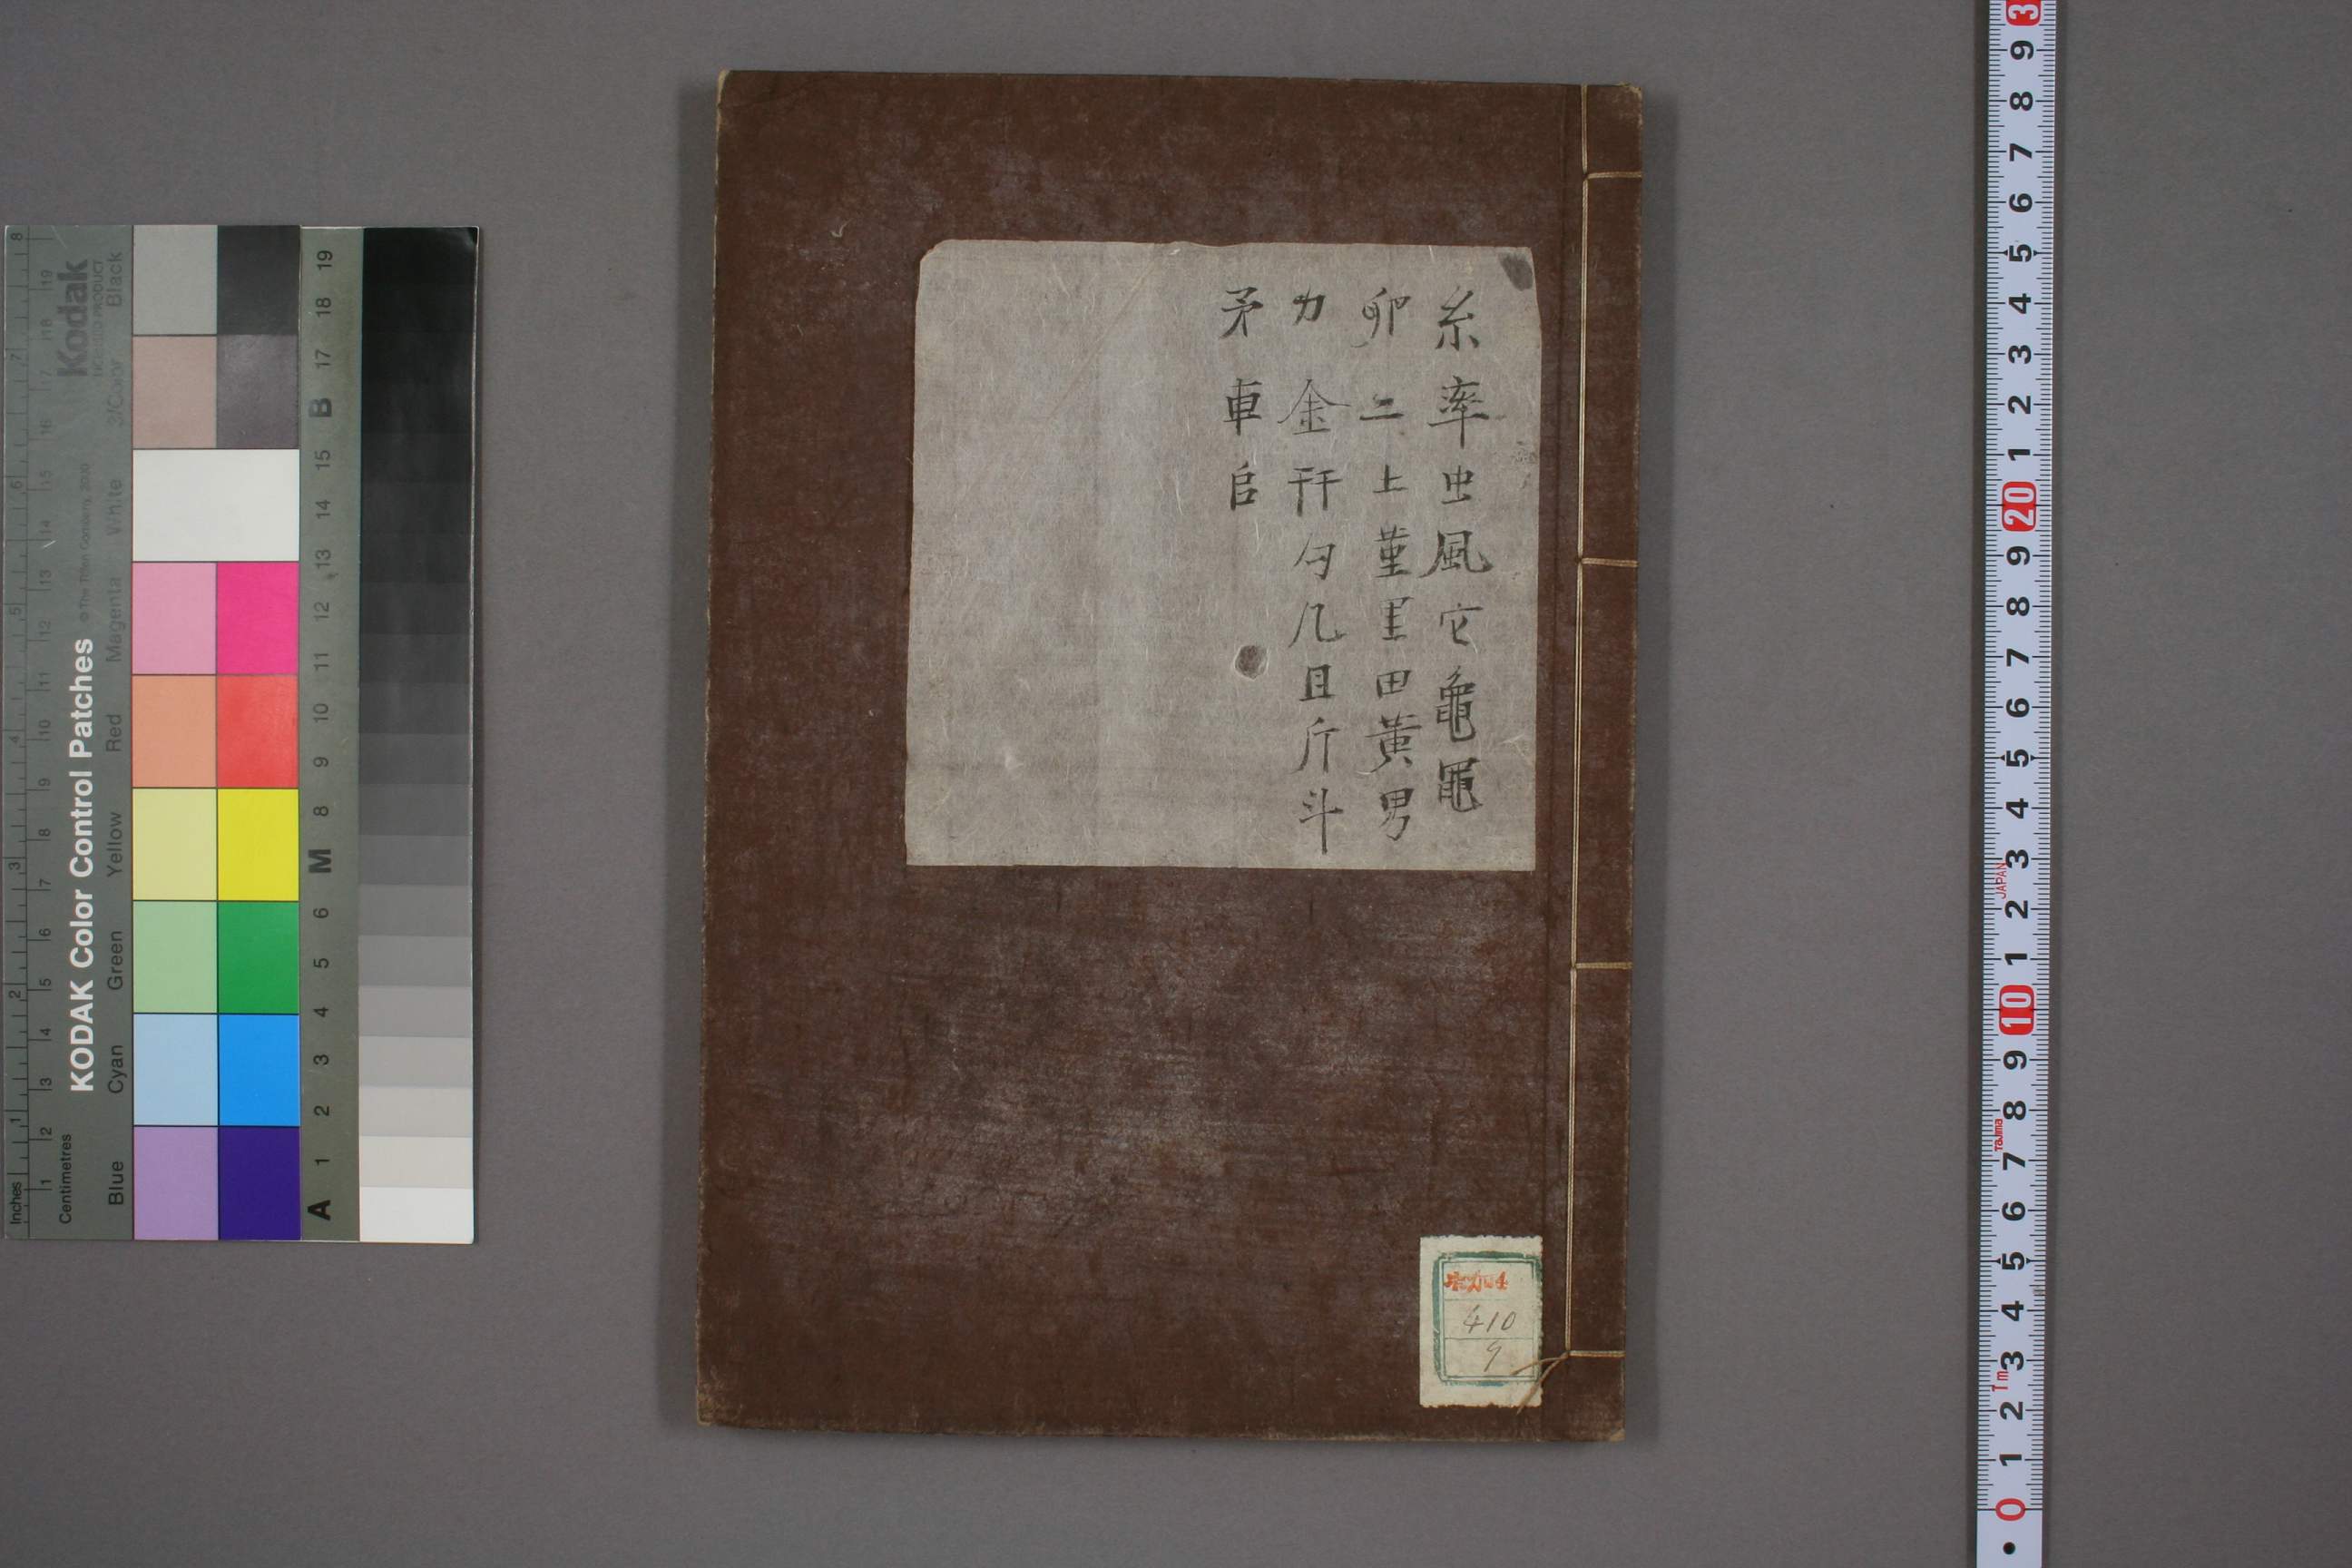 糸率虫風它龜黽
卵二土堇里田黃男
力金幵勺几且斤斗
矛車𠂤
410
9
KODAK Color Control Patches
Kodak
LICENSED PRODUCT
© The Tiffen Company, 2000
Blue Cyan Green Yellow Red Magenta White 3/Color Black
Inches 1 2 3 4 5 6 7 8
Centimetres 1 2 3 4 5 6 7 8 9 10 11 12 13 14 15 16 17 18 19
A 1 2 3 4 5 6 M 8 9 10 11 12 13 14 15 B 17 18 19
0 1 2 3 4 5 6 7 8 9 10 1 2 3 4 5 6 7 8 9 20 1 2 3 4 5 6 7 8 9 3
1m
Tajima
JAPAN